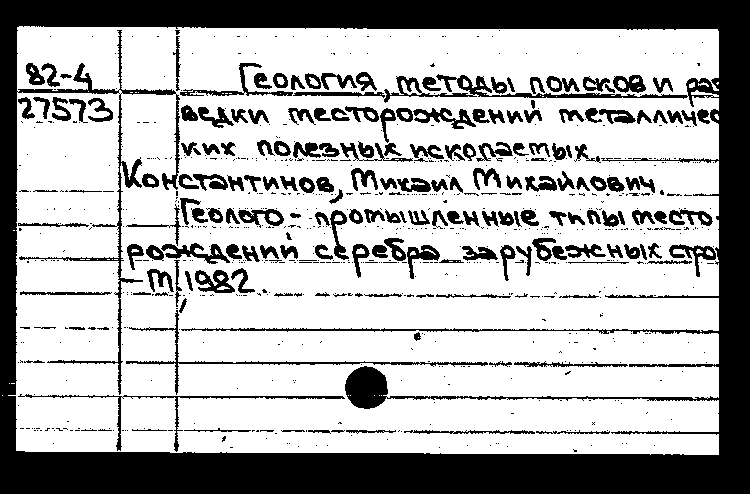 82-4 Геология, методы поисков и раз
27573 ведки месторождений металличес
ких полезных ископаемых.
Константинов, Михаил Михайлович.
Геолого-промышленные типы место-
рождений серебра зарубежных стра
– М. 1982.